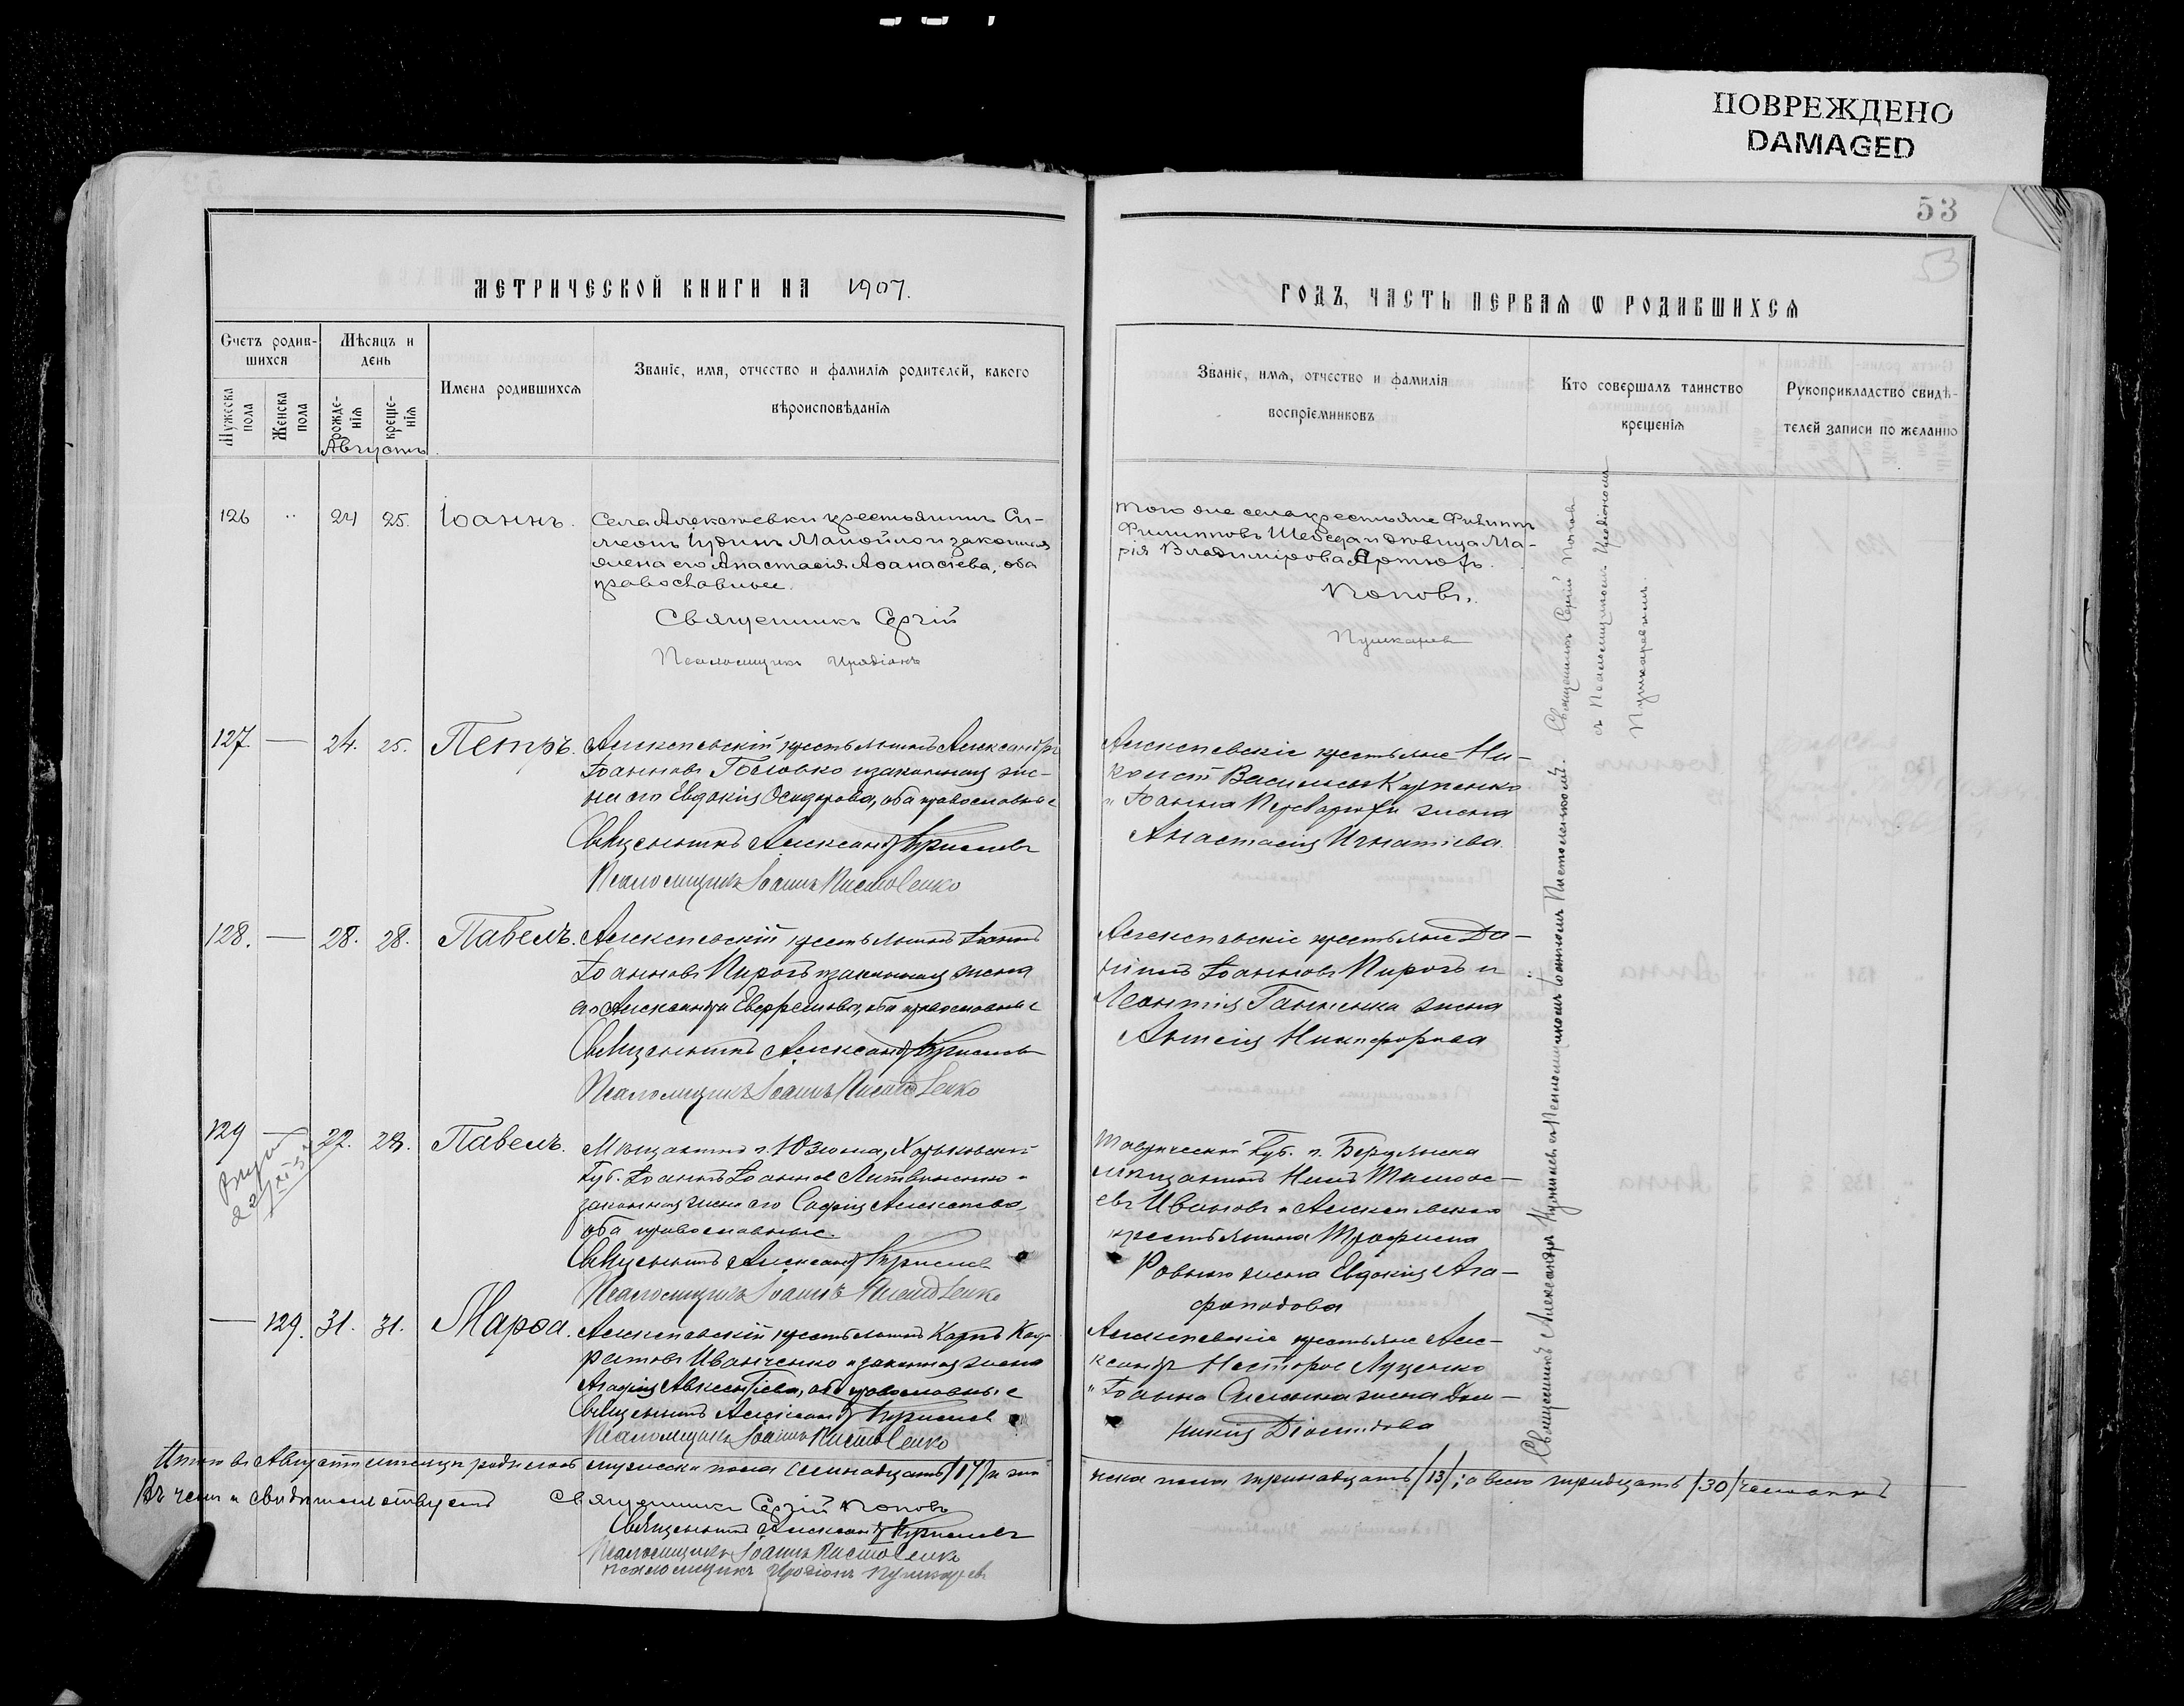 ПОВРЕЖДЕНО
DAMAGED
53
53
МЕТРИЧЕСКОЙ КНИГИ НА 1907.
Счетъ родив-
шихся
Мѣсяцъ и
день
Мужеска
пола
Женска
пола
рожде-
нія
креще-
нія
Имена родившихся
Званіе, имя, отчество и фамилія родителей, какого
вѣроисповѣданія
Августъ.
126 " 24 25. Іоаннъ.
Села Алексѣевки крестьянинъ Си-
меонъ Іудинъ Манойло и законная
жена его Анастасія Аѳанасіева, оба
православные.
Священникъ Сергій
Псаломщикъ Иродіонъ
127. — 24. 25. Петръ.
Алексѣевскій крестьянинъ Александръ
Іоанновъ Головко и законная же-
на его Евдокія Осидорова, оба православные
Священникъ Александръ
Псаломщикъ Іоаннъ
128. — 28. 28. Павелъ.
Алексѣевскій крестьянинъ Іоаннъ
Іоанновъ Пирогъ и законная жена
его Александра Евфремова, оба православные
Священникъ Александръ
Псаломщикъ Іоаннъ
129 — 22. 28. Павелъ.
22/XI
Мѣщанинъ г. Изюма, Харьковской
Губ. Іоаннъ Іоанновъ Литвиненко и
законная жена его Софія Алексѣева,
оба православные.
Священникъ Александръ
Псаломщикъ Іоаннъ
— 129. 31. 31. Марѳа.
Алексѣевскій крестьянинъ Карпъ
Иванченко и законная жена
Агафія Авксентіева, оба православные
Священникъ Александръ
Псаломщикъ Іоаннъ
Итого въ Августѣ мѣсяцѣ родилось мужеска пола семнадцать /17/ и жен
Въ чемъ и свидѣтельствуютъ
Священникъ Сергій Поповъ
Священникъ Александръ
Псаломщикъ Іоаннъ
псаломщикъ Иродіонъ Пушкаревъ
ГОДЪ, ЧАСТЬ ПЕРВАЯ Ѡ РОДИВШИХСЯ
Званіе, имя, отчество и фамилія
воспріемниковъ
Кто совершалъ таинство
крещенія
Рукоприкладство свидѣ-
телей записи по желанію
Того же села крестьяне Филиппъ
Филипповъ Шебеда и дѣвица Ма-
рія Владимірова Артюхъ.
Поповъ.
Пушкаревъ
Алексѣевскіе крестьяне Ни-
Васильевъ Карпенко
и Іоанна жена
Анастасія Игнатіева.
Алексѣевскіе крестьяне Да-
ніилъ Іоанновъ Пирогъ и
Леонтія Ганженка жена
Никифорова
Таврической Губ. г. Бердянска
мѣщанинъ Нилъ Тимоѳе-
евъ Ивановъ и Алексѣевскаго
крестьянина Трофима
жена Евдокія Ага-
фоподова
Алексѣевскіе крестьяне Але-
ксандръ Несторовъ Луценко
и Іоанна жена Дом-
никія Діомидова
ска пола тринадцать /13/; а всего тридцать /30/ человѣкъ
Священникъ Сергій Поповъ
съ Псаломщикомъ Иродіономъ
Пушкаревымъ.
Священникъ Александръ съ Псаломщикомъ Іоанномъ